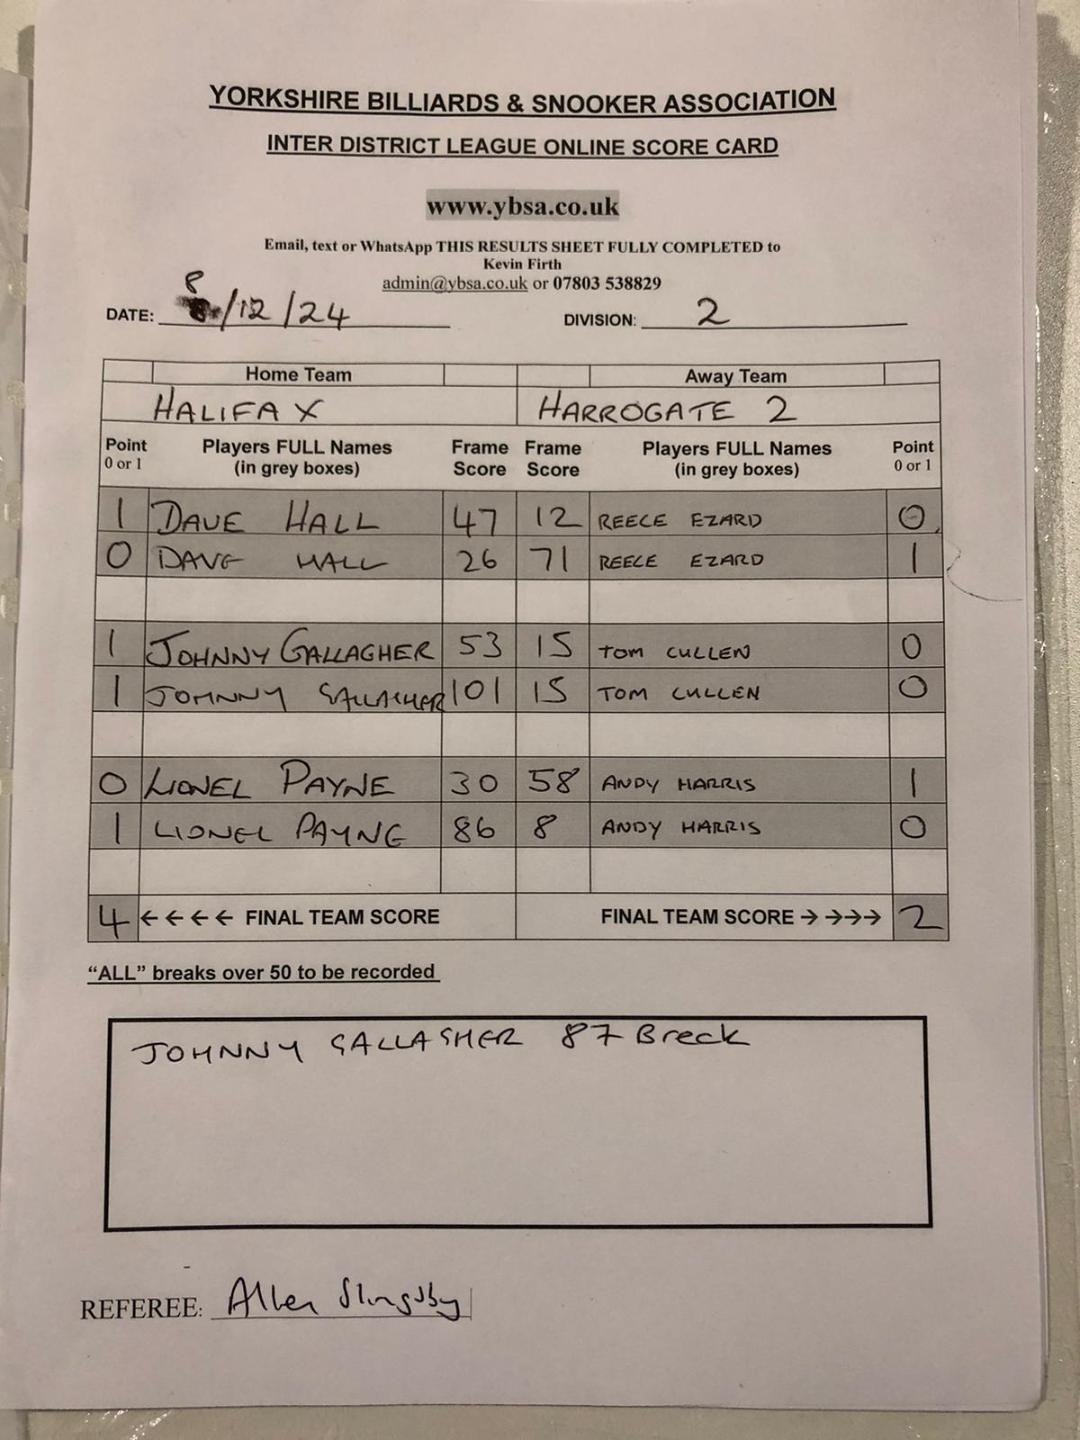 YORKSHIRE BILLIARDS & SNOOKER ASSOCIATION
INTER DISTRICT LEAGUE ONLINE SCORE CARD
www.ybsa.co.uk
Email, text or WhatsApp THIS RESULTS SHEET FULLY COMPLETED to
Kevin Firth
admin@ybsa.co.uk or 07803 538829
DATE: 8/12/24 DIVISION: 2
Home Team Away Team
HALIFAX HARROGATE 2
Point Players FULL Names Frame Frame Players FULL Names Point
0 or 1 (in grey boxes) Score Score (in grey boxes) 0 or 1
1 DAVE HALL 47 12 REECE EZARD 0
0 DAVE HALL 26 71 REECE EZARD 1
1 JOHNNY GALLAGHER 53 15 TOM CULLEN 0
1 JOHNNY GALLAGHER 101 15 TOM CULLEN 0
0 LIONEL PAYNE 30 58 ANDY HARRIS 1
1 LIONEL PAYNE 86 8 ANDY HARRIS 0
4 ←←←← FINAL TEAM SCORE FINAL TEAM SCORE →→→→ 2
“ALL” breaks over 50 to be recorded
JOHNNY GALLAGHER 87 Breck
REFEREE: Allen Slingsby